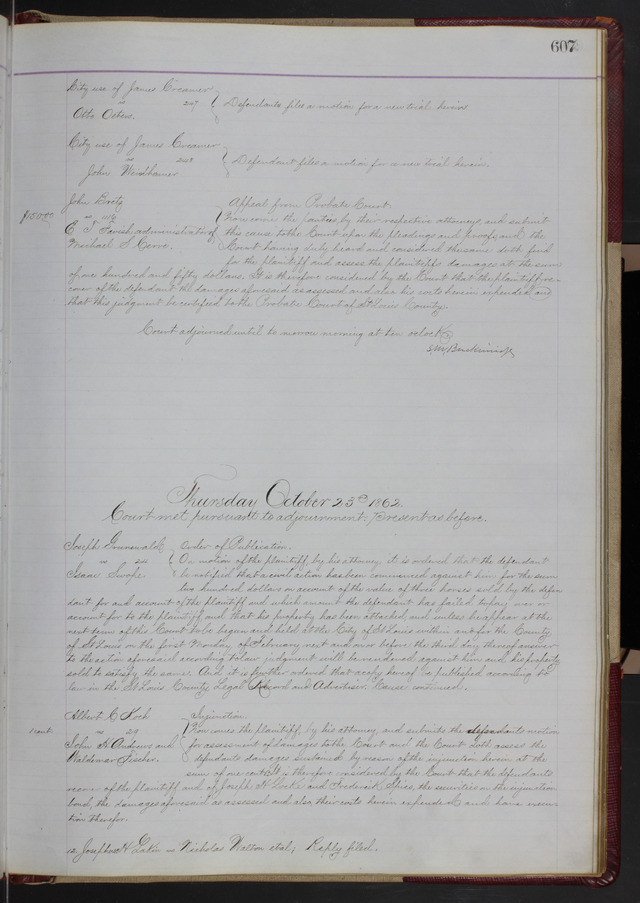 607
City use of James Creamer
vs 207 Defendant files a motion for a new trial herein
Otto Osters.
City use of James Creamer
vs 208 Defendant files a motion for a new trial herein.
John Weishamer
John Bretz Appeal from Probate Court.
$150.00 vs Now come the parties by their respective attorneys, and submit
C T Farish administrator of this cause to the Court upon the pleadings and proofs, and the
Michael S. Cerre. Court having duly heard and considered the same, doth find
for the plaintiff and assess the plaintiffs damages at the sum
of one hundred and fifty dollars. It is therefore considered by the Court that the plaintiff re-
cover of the defendant the damages aforesaid as assessed and also his costs herein expended, and
that this judgment be certified to the Probate Court of St Louis County.
Court adjourned until to morrow morning at ten oclock
S M Breckinridge
Thursday October 23d 1862.
Court met pursuant to adjournment: Present as before.
Joseph Grunewald Order of Publication.
vs 24 On motion of the plaintiff, by his attorney, it is ordered that the defendant
Isaac Swope. be notified that a civil action has been commenced against him for the sum
two hundred dollars on account of the value of three horses sold by the defen
dant for and account of the plaintiff and which amount the defendant has failed to pay over or
account for to the plaintiff, and that his property has been attached, and unless he appear at the
next term of this Court to be begun and held at the City of St Louis within and for the County
of St Louis on the first Monday of February next and on or before the third day thereof answer
to the action aforesaid according to law judgment will be rendered against him and his property
sold to satisfy the same. And it is further ordered that a copy hereof be published according to
law in the St Louis County Legal Record and Advertiser. Cause continued.
Albert C Koch Injunction.
1 cent. vs 29 Now comes the plaintiff, by his attorney, and submits the defendants motion
John H Andrews and for assessment of damages to the Court and the Court doth assess the
Waldemar Fischer. defendants damages sustained by reason of the injunction herein at the
sum of one cent. It is therefore considered by the Court that the defendants
recover of the plaintiff and of Joseph H Locke and Frederick Spies, the securities on the injunction
bond, the damages aforesaid as assessed and also their costs herein expended and have execu
tion therefor.
12 Josephus H Eaker vs Nicholas Watson et al; Reply filed.